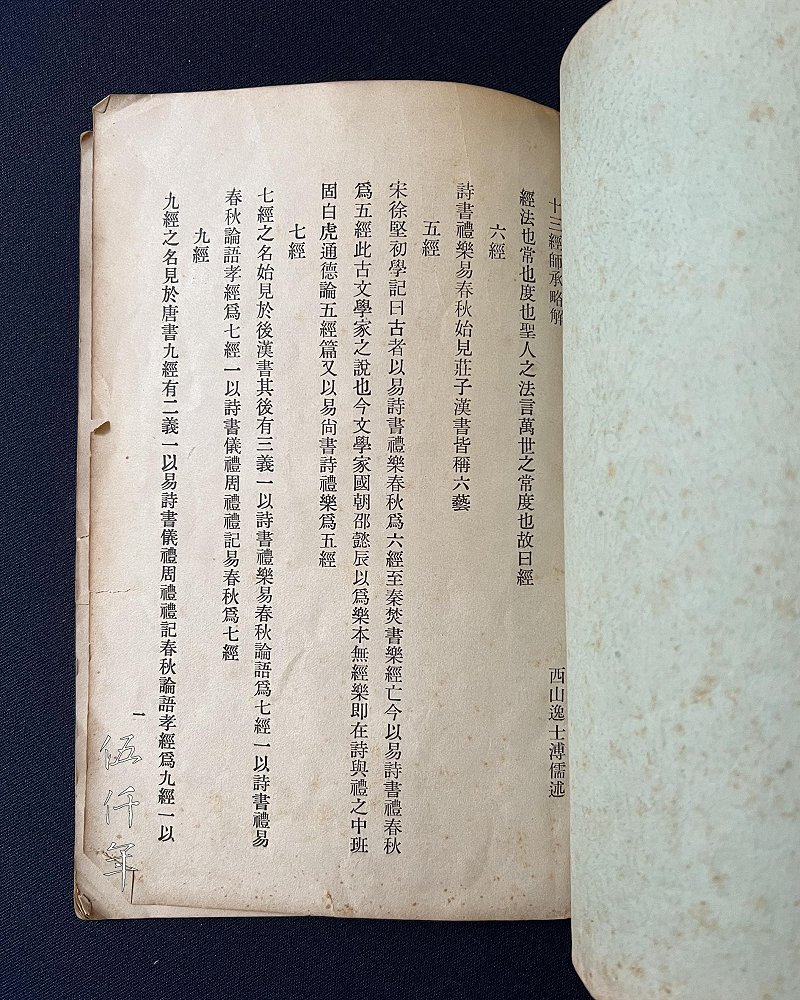 十三經師承略解
西山逸士溥儒述
經法也常也度也聖人之法言萬世之常度也故曰經
六經
詩書禮樂易春秋始見莊子漢書皆稱六藝
五經
宋徐堅初學記曰古者以易詩書禮樂春秋爲六經至秦焚書樂經亡今以易詩書禮春秋
爲五經此古文學家之說也今文學家國朝邵懿辰以爲樂本無經樂即在詩與禮之中班
固白虎通德論五經篇又以易尙書詩禮樂爲五經
七經
七經之名始見於後漢書其後有三義一以詩書禮樂易春秋論語爲七經一以詩書禮易
春秋論語孝經爲七經一以詩書儀禮周禮禮記易春秋爲七經
九經
九經之名見於唐書九經有二義一以易詩書儀禮周禮禮記春秋論語孝經爲九經一以
一
伍仟年